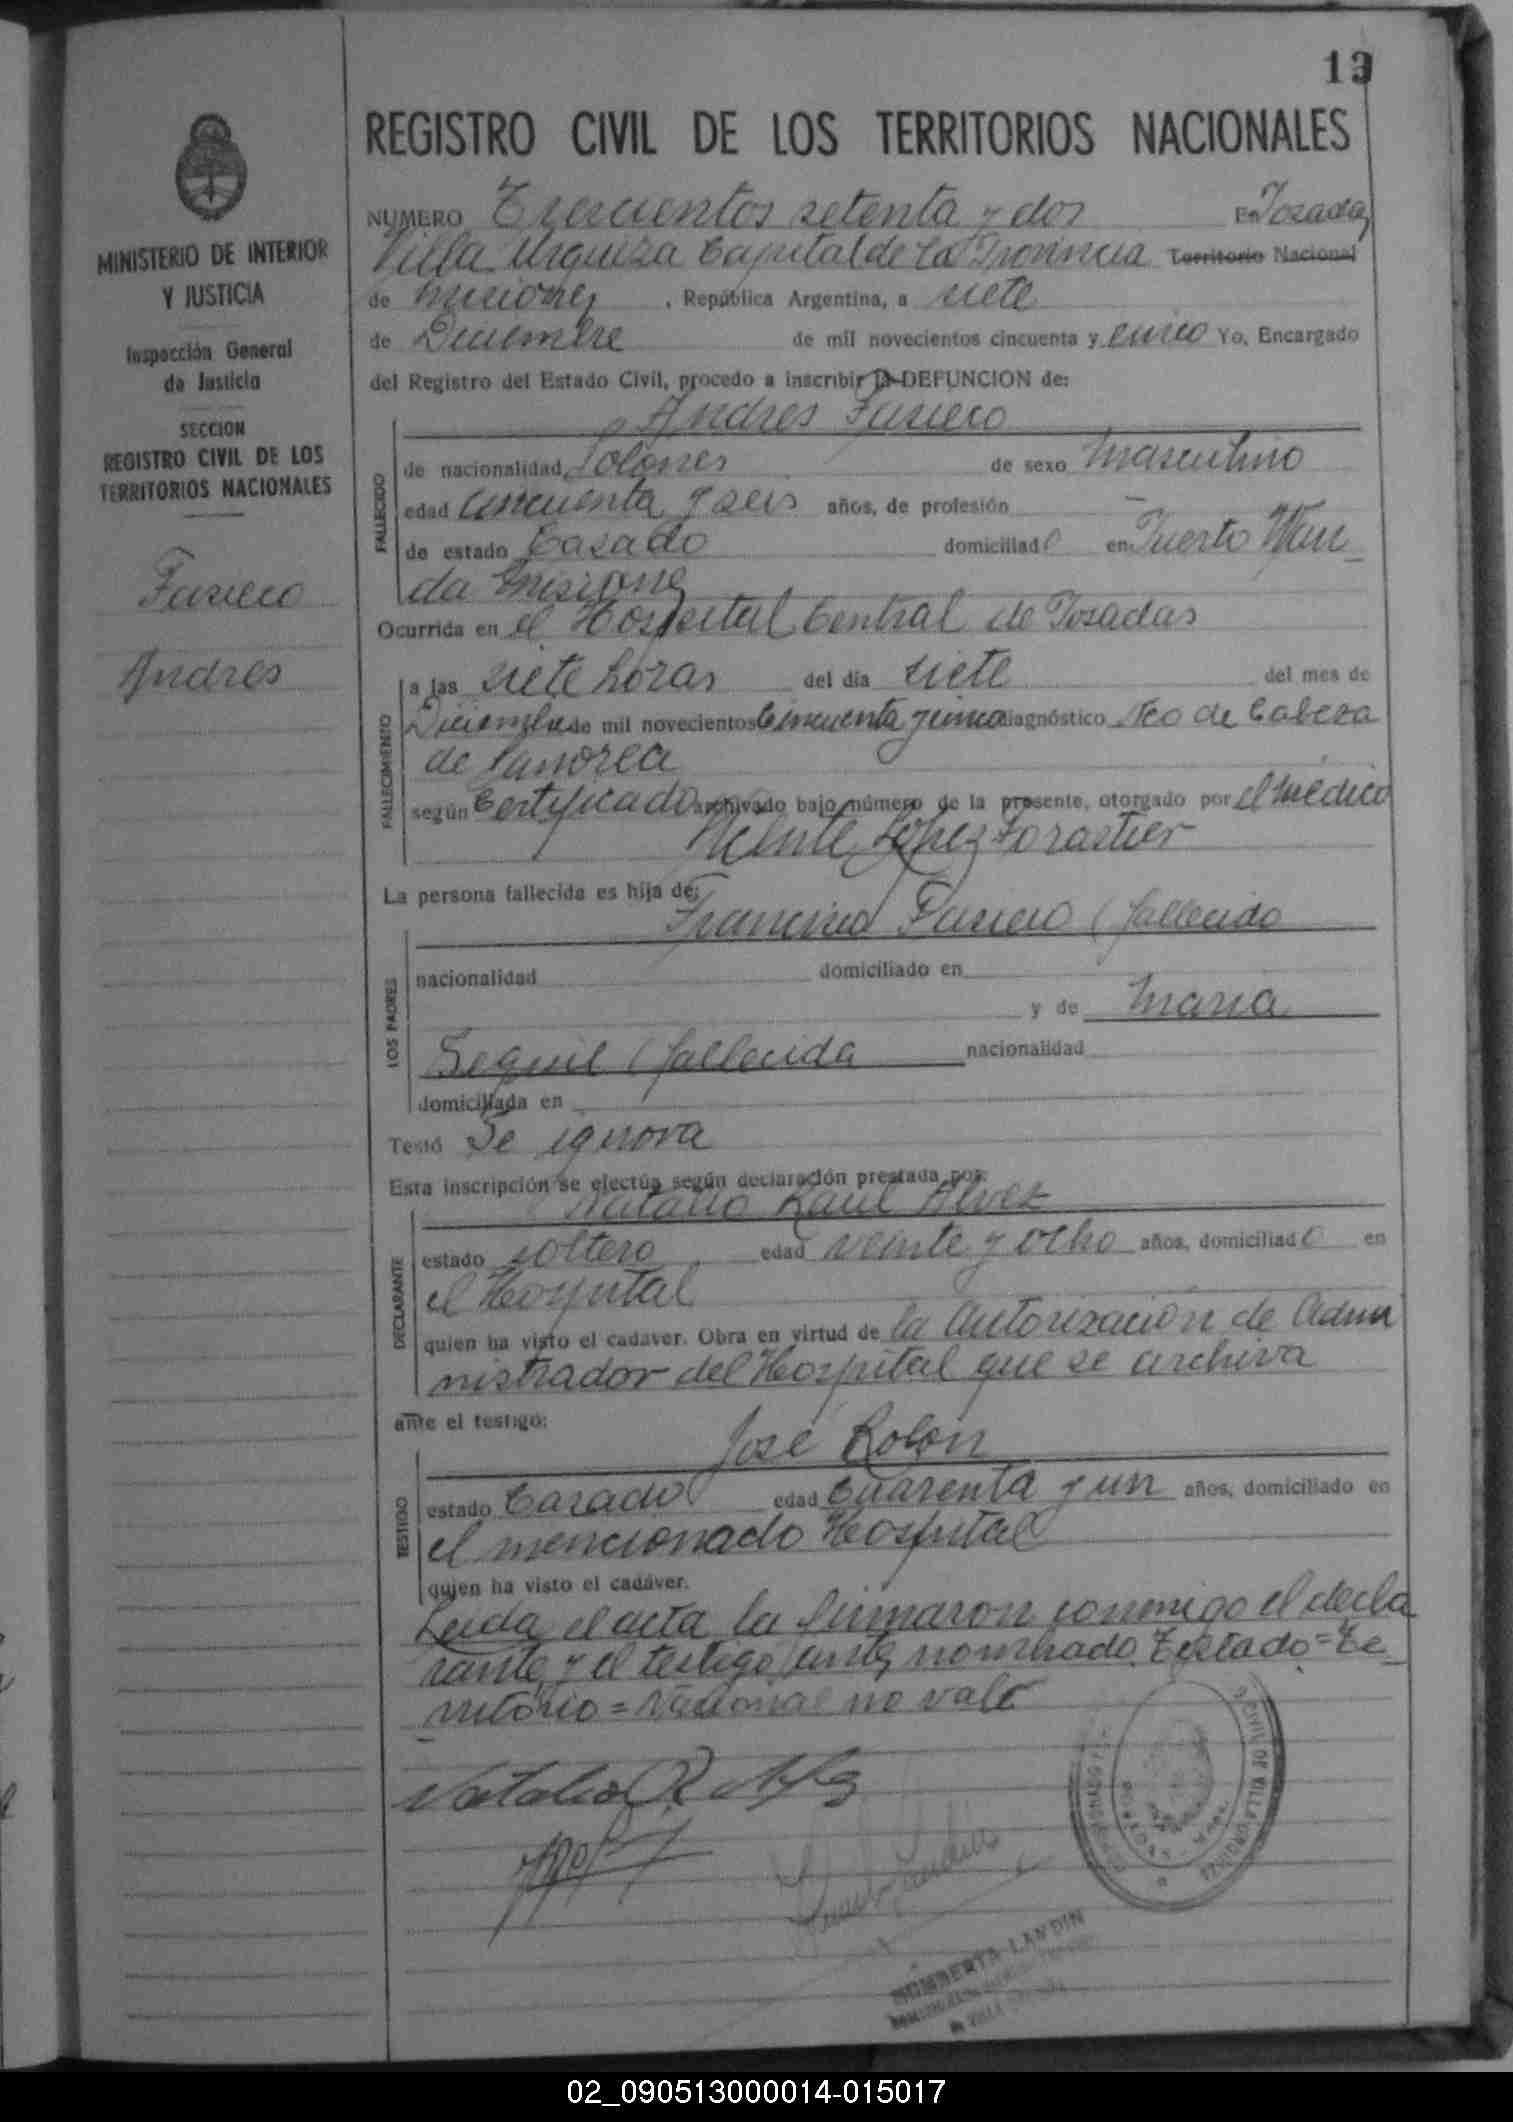 13
REGISTRO CIVIL DE LOS TERRITORIOS NACIONALES
MINISTERIO DE INTERIOR
Y JUSTICIA
Inspección General
de Justicia
SECCION
REGISTRO CIVIL DE LOS
TERRITORIOS NACIONALES
Andres
NUMERO Trescientos setenta y dos En Posadas
Villa Urquiza Capital de la Provincia Territorio Nacional
de Misiones, República Argentina, a siete
de Diciembre de mil novecientos cincuenta y cinco Yo, Encargado
del Registro del Estado Civil, procedo a inscribir la DEFUNCION de:
Andres
FALLECIDO
de nacionalidad Polones de sexo Masculino
edad cincuenta y seis años, de profesión —
de estado Casado domiciliado en Puerto Wan
da Misiones
Ocurrida en el Hospital Central de Posadas
FALLECIMIENTO
a las siete horas del día siete del mes de
Diciembre de mil novecientos cincuenta y cinco diagnóstico Neo de Cabeza
de Pancrea
según Certificado archivado bajo número de la presente, otorgado por el Médico
Vicente López Forastier
La persona fallecida es hija de:
Francisco (fallecido
LOS PADRES
nacionalidad domiciliado en
y de Maria
(fallecida nacionalidad
domiciliada en
Testó Se ignora
Esta inscripción se efectúa según declaración prestada por:
Natalio Raul Alvez
DECLARANTE
estado soltero edad veinte y ocho años, domiciliado en
el Hospital
quien ha visto el cadaver. Obra en virtud de la Autorización de Admi
nistrador del Hospital que se archiva
ante el testigo:
José Rolón
TESTIGO
estado Casado edad Cuarenta y un años, domiciliado en
el mencionado Hospital
quien ha visto el cadáver.
Leida el acta la firmaron conmigo el decla
rante y el testigo antes nombrado. Testado = Te
rritorio = Nacional no vale
LANDIN
02_090513000014-015017